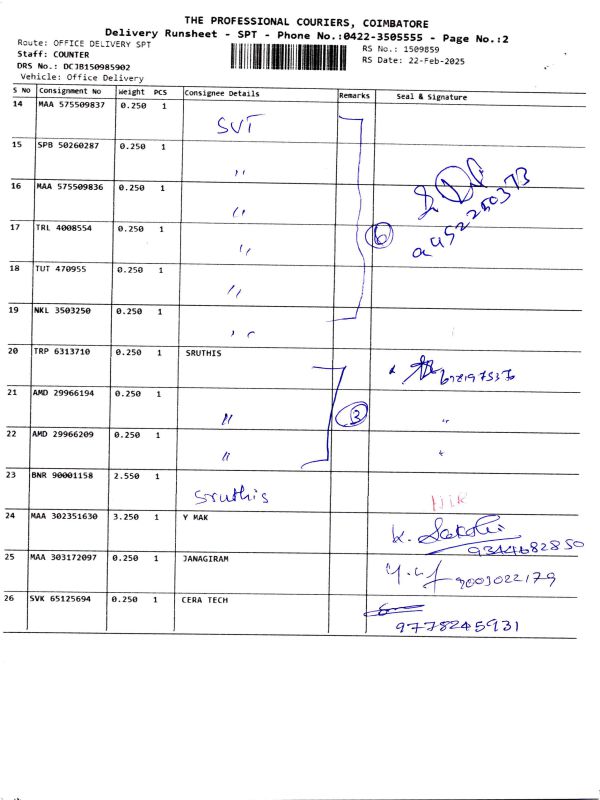 THE PROFESSIONAL COURIERS, COIMBATORE
Delivery Runsheet - SPT - Phone No.:0422-3505555 - Page No.:2
Route: OFFICE DELIVERY SPT
Staff: COUNTER
DRS No.: DCJB150985902
Vehicle: Office Delivery
RS No.: 1509859
RS Date: 22-Feb-2025
S No Consignment No Weight PCS Consignee Details Remarks Seal & Signature
14 MAA 575509837 0.250 1 SVT
15 SPB 50260287 0.250 1 "
16 MAA 575509836 0.250 1 "
17 TRL 4008554 0.250 1 " 6
18 TUT 470955 0.250 1 "
19 NKL 3503250 0.250 1 "
20 TRP 6313710 0.250 1 SRUTHIS
21 AMD 29966194 0.250 1 " 3 "
22 AMD 29966209 0.250 1 " "
23 BNR 90001158 2.550 1 Sruthis
24 MAA 302351630 3.250 1 Y MAK K. Sakthi
9344682850
25 MAA 303172097 0.250 1 JANAGIRAM 9003022179
26 SVK 65125694 0.250 1 CERA TECH
9778245931